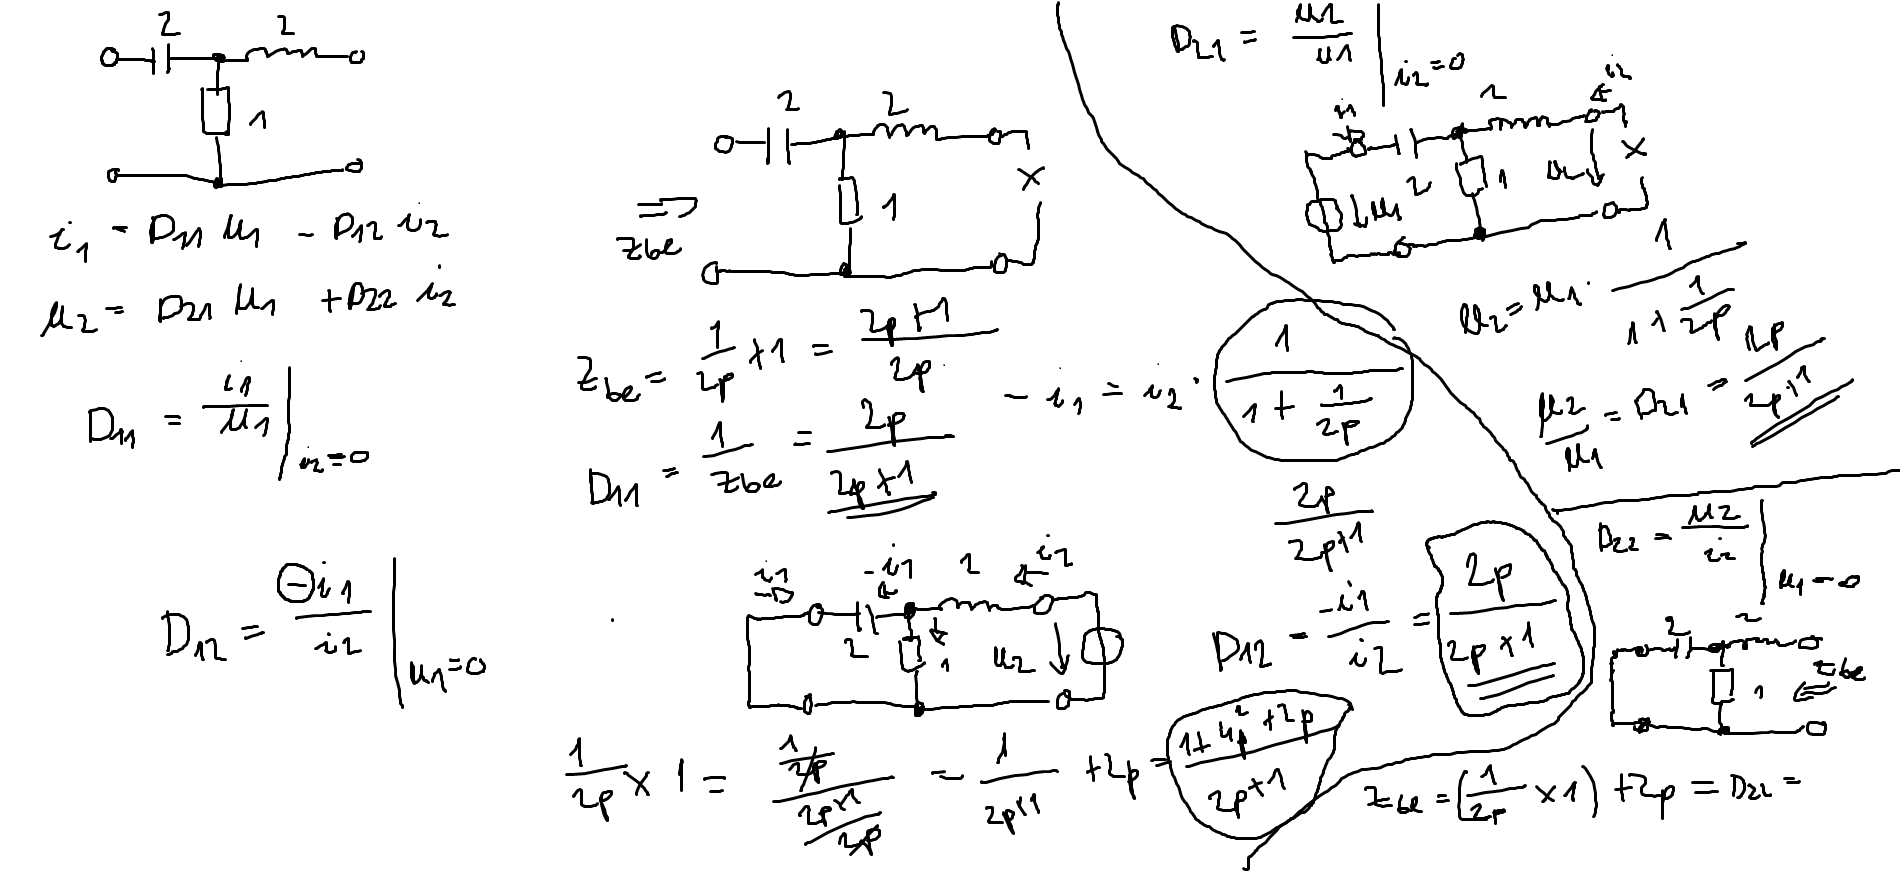 2 2
1
i1 = D11 u1 - D12 i2
u2 = D21 u1 + D22 i2
D11 = i1/u1 | i2=0
D12 = -i1/i2 | u1=0
2 2
1
X
zbe
Zbe = 1/2p + 1 = 2p+1/2p
D11 = 1/zbe = 2p/2p+1
i1 -i1 2 i2
2 1 u2
1/2p x 1 = 1/2p / 2p+1/2p = 1/2p+1 + 2p = 1+4p²+2p/2p+1
- i1 = i2 · 1/1 + 1/2p
2p/2p+1
D12 = -i1/i2 = 2p/2p+1
D21 = u2/u1 | i2=0
i1 2 i2
u1 2 1 X
u2 = u1 · 1/1 + 1/2p
u2/u1 = D21 = 2p/2p+1
D22 = u2/i2 | u1=0
2 2
1 zbe
Zbe = (1/2p x 1) + 2p = D22 =